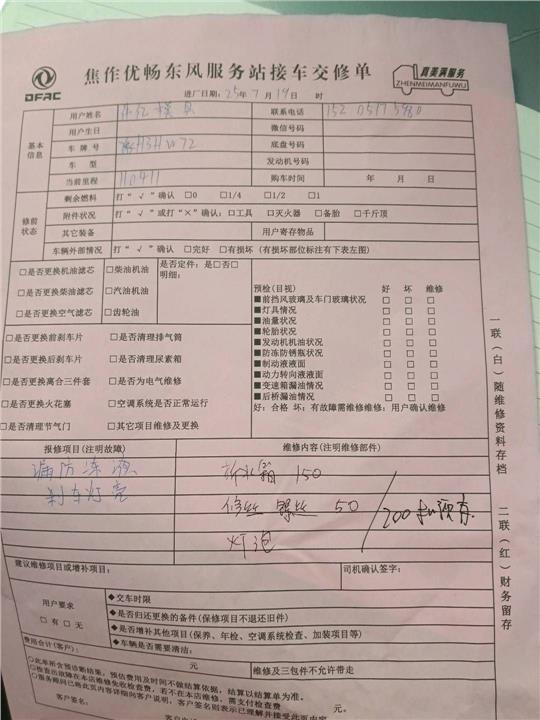 DFAC
焦作优畅东风服务站接车交修单
真美满服务
ZHENMEIMANFUWU
进厂日期: 25年 7月 19日 时
基本信息
用户姓名 联系电话
用户生日 微信号码
车牌号 底盘号码
车型 发动机号码
当前里程 110411 购车时间 年 月 日
修前状态
剩余燃料 打“√”确认 □0 □1/4 □1/2 □1
附件状况 打“√”或打“×”确认: □工具 □灭火器 □备胎 □千斤顶
其它装备 用户寄存物品
车辆外部情况 打“√”确认 □完好 □有损坏 (有损坏部位标注有下表左图)
□是否更换机油滤芯 □柴油机油 是否定件: 是□否□
明细:
□是否更换柴油滤芯 □汽油机油
□是否更换空气滤芯 □齿轮油
预检(目视) 好 坏 维修
■前挡风玻璃及车门玻璃状况 □ □ □
■灯具情况 □ □ □
■油量状况 □ □ □
■轮胎状况 □ □ □
■发动机机油状况 □ □ □
■防冻防锈瓶状况 □ □ □
■制动液液面 □ □ □
■动力转向液液面 □ □ □
■变速箱漏油情况 □ □ □
■后桥漏油情况 □ □ □
好: 合格 坏: 有故障需维修维修: 用户确认维修
□是否更换前刹车片 □是否清理排气筒
□是否更换后刹车片 □是否清理尿素箱
□是否更换离合三件套 □是否为电气维修
□是否更换火花塞 □空调系统是否正常运行
□是否清理节气门 □其它项目维修及更换
报修项目(注明故障) 维修内容(注明维修部件)
漏防冻液 150
刹车灯壳 螺丝 50
灯泡
200
建议维修项目或增补项目: 司机确认签字:
用户要求
□有 □无
◆交车时限
◆是否归还更换的备件(保修项目不退还旧件)
◆是否增补其他项目(保养、年检、空调系统检查、加装项目等)
◆车辆是否需要清洁:
费用合计(客户): 元 维修及三包件不允许带走
○此单所含预诊断结果, 预估费用及时间不做结算依据, 结算以结算单为准。
○检查出故障在本店维修免收检查费, 若不在本店维修, 需支付检查费 元。
○服务顾问已将此页内容详细向客户说明, 客户签名则表示已理解并接受此页内容
客户签名:
一联(白)随维修资料存档
二联(红)财务留存